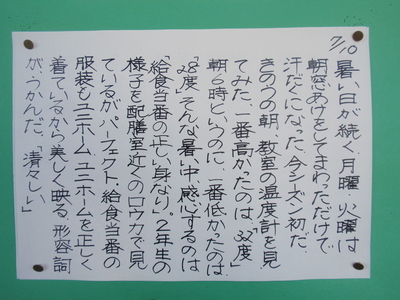 7/10
暑い日が続く。月曜、火曜は
朝窓あけをしてまわっただけで
汗だくになった。今シーズン初だ。
きのうの朝、教室の温度計を見
てみた。一番高かったのは「32度」
朝6時というのに、一番低かったのは
「28度」そんな暑い中感心するのは
「給食当番の正しい身なり」。2年生の
様子を配膳室近くのロウカで見
ているがパーフェクト。給食当番の
服装もユニホーム、ユニホームを正しく
着ているから美しく映る。形容詞
が、うかんだ。「清々しい」